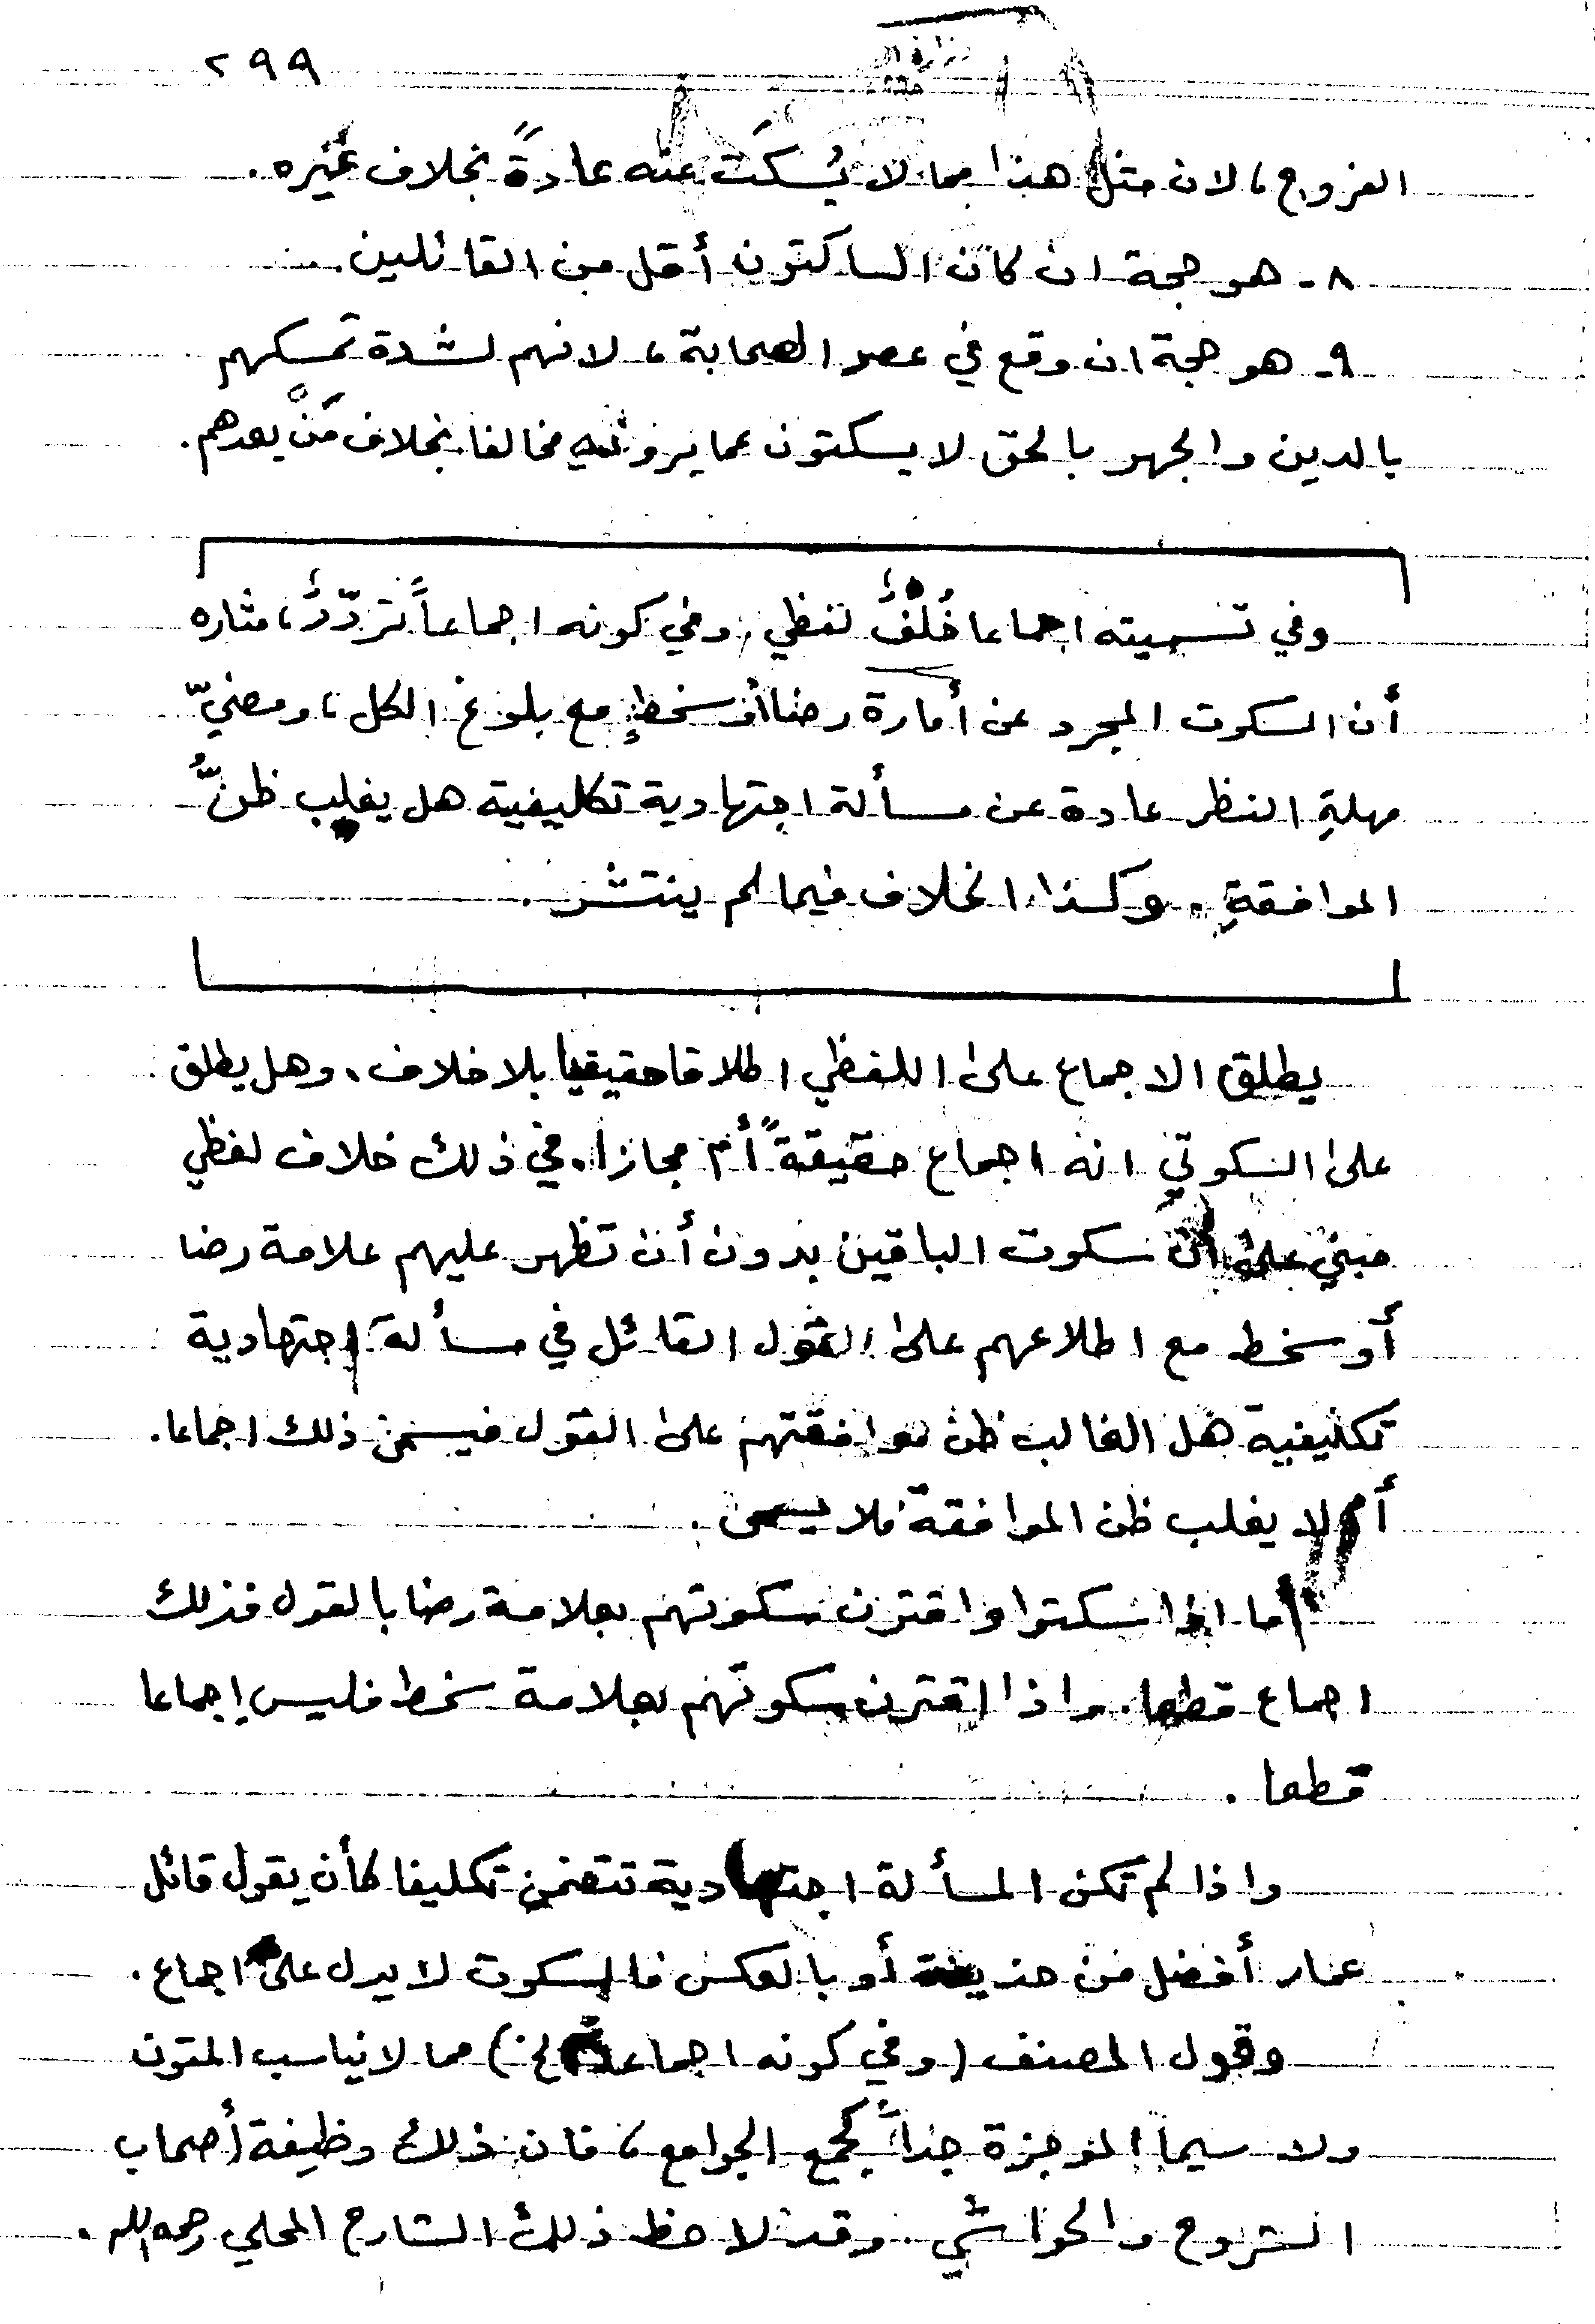 ٢٩٩
الفروج، لان مثل هذا مما لا يُسكَت عنه عادةً بخلاف غيره.
٨- هو حجة ان كان الساكتون أقل من القائلين.
٩- هو حجة ان وقع في عصر الصحابة، لانهم لشدة تمسكهم
بالدين والجهر بالحق لا يسكتون عما يرونه مخالفا بخلاف مَنْ بعدهم.
وفي تسميته اجماعا خُلْفٌ لفظي، وفي كونه اجماعاً تردّدٌ، مثاره
أن السكوت المجرد عن أمارة رضا أو سخطٍ مع بلوغ الكل، ومضيّ
مهلةِ النظر عادة عن مسألة اجتهادية تكليفية هل يغلِب ظنُّ
الموافقةِ. وكذا الخلاف فيما لم ينتشر.
يطلق الاجماع على اللفظي اطلاقا حقيقيا بلا خلاف، وهل يطلق
على السكوتي انه اجماع حقيقةً أم مجازا. في ذلك خلاف لفظي
مبني على أن سكوت الباقين بدون أن تظهر عليهم علامة رضا
أو سخط مع اطلاعهم على القول القائل في مسألة اجتهادية
تكليفية هل الغالب ظن موافقتهم على القول فيسمى ذلك اجماعا.
أم لا يغلب ظن الموافقة فلا يسمى.
أما اذا سكتوا واقترن سكوتهم بعلامة رضا بالقول فذلك
اجماع قطعا. واذا اقترن سكوتهم بعلامة سخط فليس إجماعا
قطعا.
واذا لم تكن المسألة اجتهادية تتضمن تكليفا كأن يقول قائل
عمار أفضل من حذيفة أو بالعكس فالسكوت لا يدل على اجماع.
وقول المصنف (وفي كونه اجماعا الخ) مما لا يناسب المتون
ولا سيما الموجزة جداً كجمع الجوامع، فان ذلك وظيفة أصحاب
الشروح والحواشي. وقد لاحظ ذلك الشارح المحلي رحمه الله.